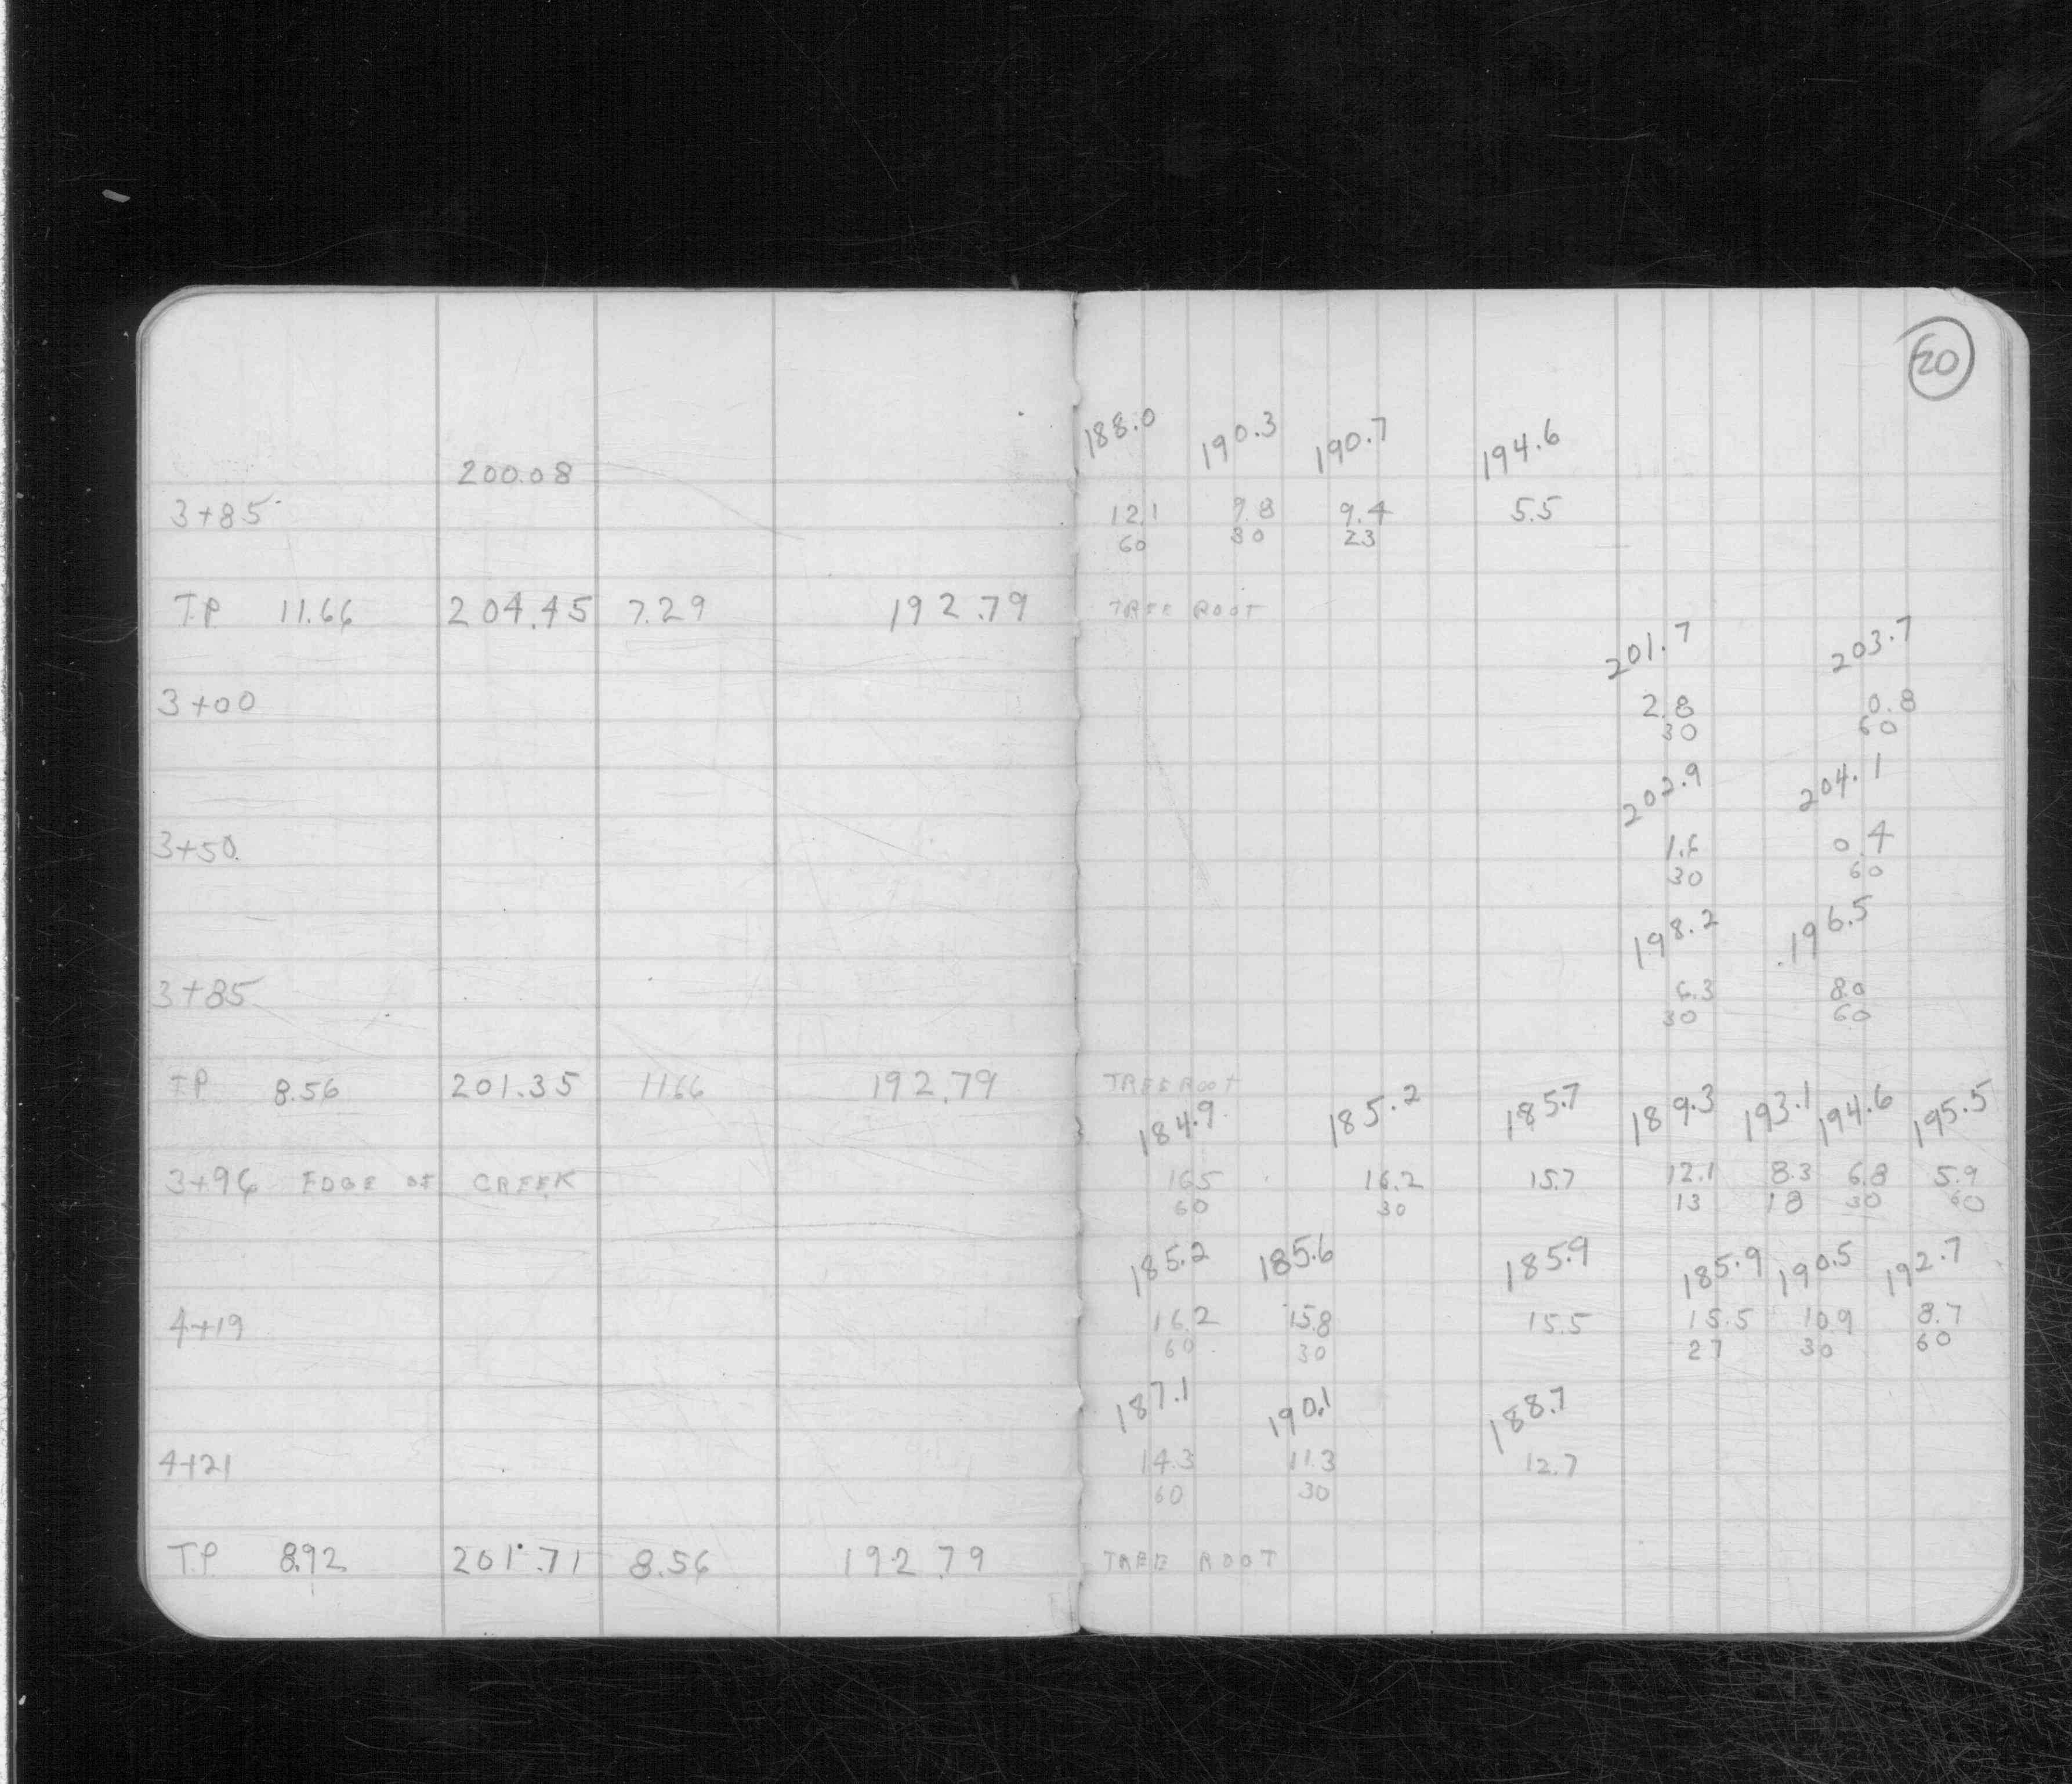 20
188.0 190.3 190.7 194.6
200.08
3+85 12.1 9.8 9.4 5.5
60 30 23
T.P. 11.66 204.45 7.29 192.79 TREE ROOT
201.7 203.7
3+00 2.8 0.8
30 60
202.9 204.1
3+50 1.6 0.4
30 60
198.2 196.5
3+85 6.3 8.0
30 60
TP 8.56 201.35 11.66 192.79 TREE ROOT
184.9 185.2 185.7 189.3 193.1 194.6 195.5
3+96 EDGE OF CREEK 16.5 16.2 15.7 12.1 8.3 6.8 5.9
60 30 13 18 30 60
185.2 185.6 185.9 185.9 190.5 192.7
4+19 16.2 15.8 15.5 15.5 10.9 8.7
60 30 27 30 60
187.1 190.1 188.7
4+21 14.3 11.3 12.7
60 30
T.P. 8.92 201.71 8.56 192.79 TREE ROOT